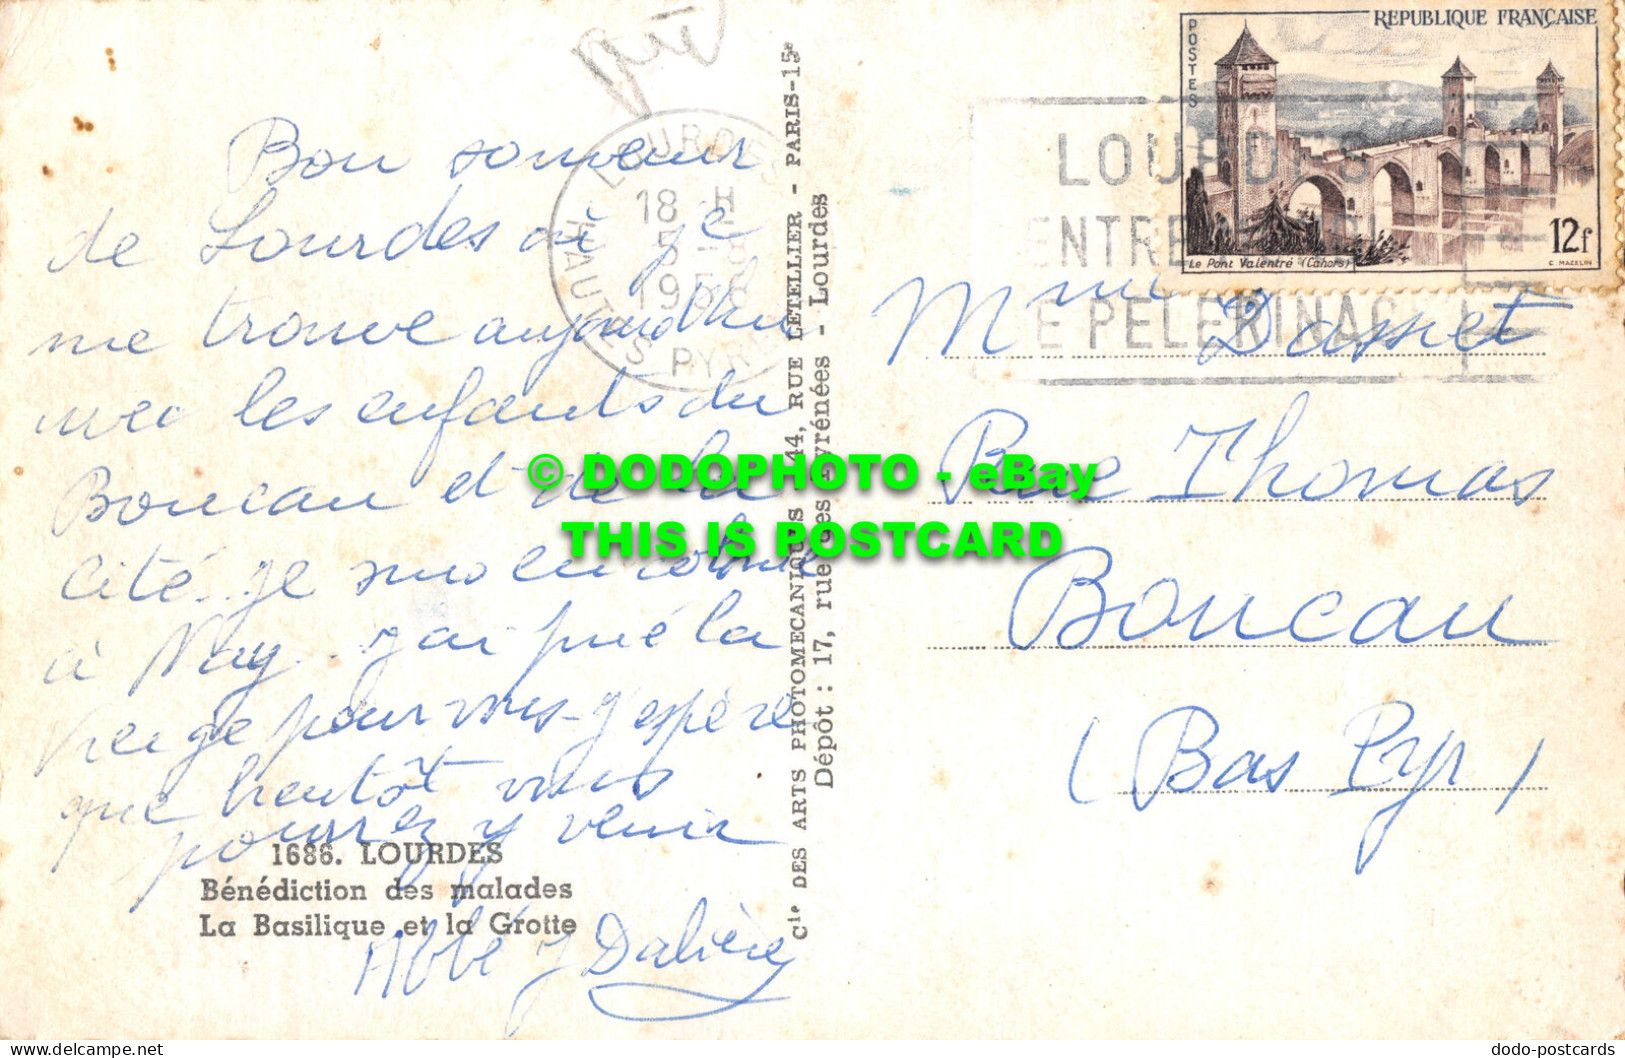 Bon souvenir
de Lourdes où je
me trouve aujourd'hui
avec les enfants du
Boucau et de la
Cité. je suis en colonie
à Nay. j'ai prié la
Vierge pour vous. j'espère
que bientôt vous
pourrez y venir
Abbé J Dalière
1686. LOURDES
Bénédiction des malades
La Basilique et la Grotte
Cie DES ARTS PHOTOMECANIQUES 44, RUE LETELLIER - PARIS-15e
Dépôt : 17, rue des Pyrénées - Lourdes
LOURDES
18 H
5 - 8
1956
HAUTES PYR
REPUBLIQUE FRANÇAISE
POSTES
12f
Le Pont Valentré (Cahors)
C. MAZELIN
LOURDES
CENTRE
DE PELERINAGE
Mme Dasset
Rue Thomas
Boucau
(Bas Pyr)
© DODOPHOTO - eBay
THIS IS POSTCARD
dodo-postcards